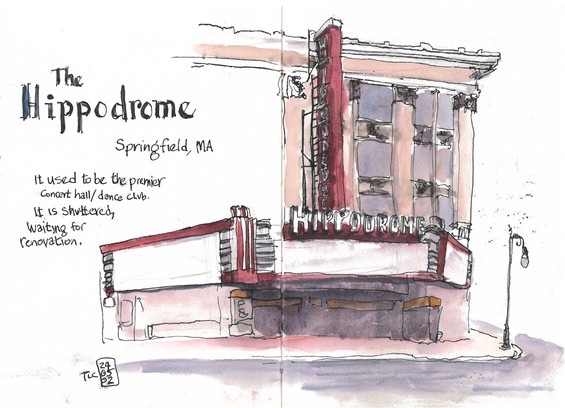 The
Hippodrome
Springfield, MA
It used to be the premier
concert hall/dance club.
It is shuttered,
Waiting for
renovation.
HIPPODROME
HIPPODROME
TLC
24
05
02